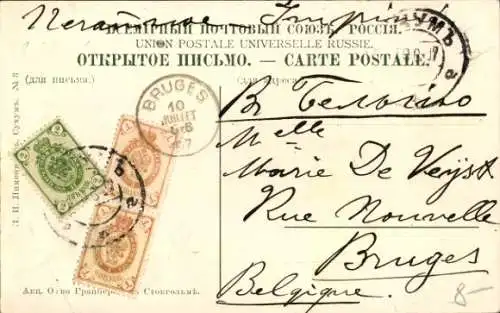 Печатное Imprimé
ВСЕМІРНЫЙ ПОЧТОВЫЙ СОЮЗЪ. РОССІЯ.
UNION POSTALE UNIVERSELLE RUSSIE.
ОТКРЫТОЕ ПИСЬМО. — CARTE POSTALE.
(для письма.)
(для адреса.)
BRUGES
10
JUILLET
Въ Бельгію
Melle
Marie De Veyst
Rue Nouvelle
Bruges
Belgique.
8-
Сухумъ. № 3
Акц. О-во Гранбергъ Стокгольмъ.